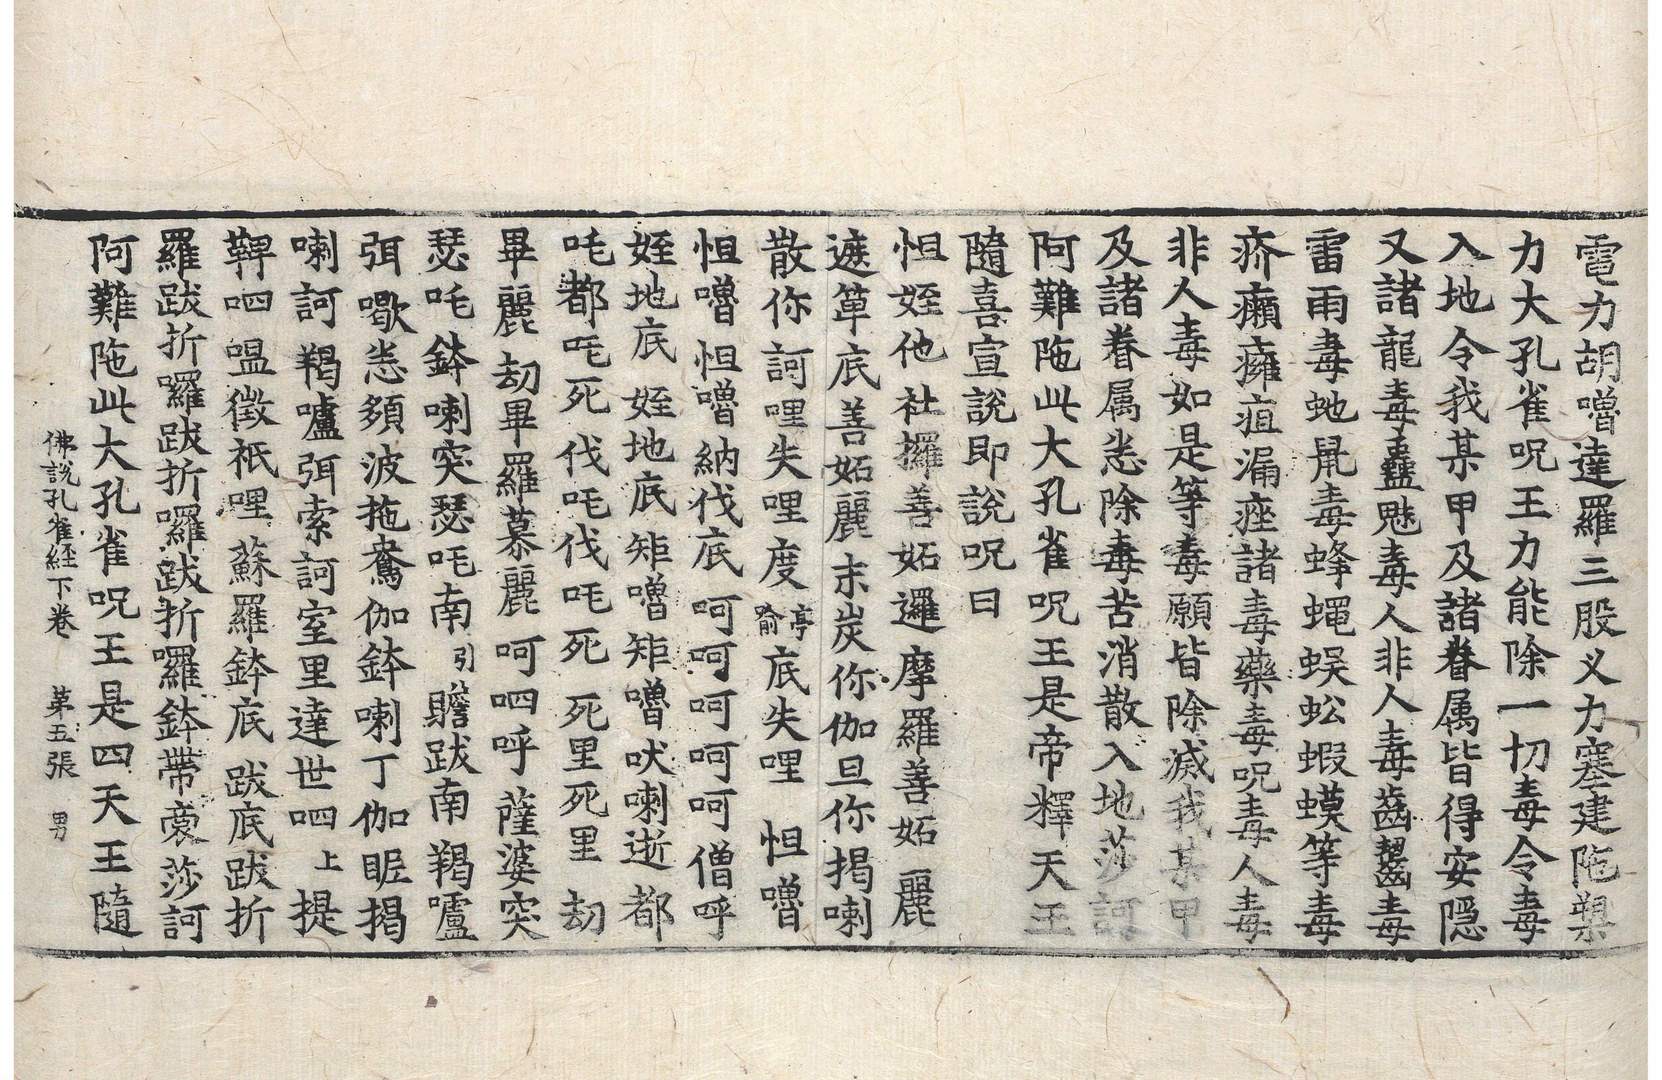 電力胡嚕達羅三股叉力塞建陁槊
力大孔雀呪王力能除一切毒令毒
入地令我某甲及諸眷属皆得安隱
又諸龍毒蠱魅毒人非人毒齒齧毒
雷雨毒虵鼠毒蜂蠅蜈蚣蝦蟆等毒
疥癩癰疽漏痤諸毒藥毒呪毒人毒
非人毒如是等毒願皆除滅我某甲
及諸眷属悉除毒苦消散入地莎訶
阿難陁此大孔雀呪王是帝釋天王
隨喜宣說即說呪曰
怛姪他社攞善妬邏摩羅善妬麗
遮箄底善妬麗末炭你伽旦你揭喇
散你訶哩失哩度亭喻底失哩 怛嚕
怛嚕怛嚕納伐底 呵呵呵呵僧呼
姪地底 姪地底矩嚕矩嚕吠喇逝都
吒都吒死 伐吒伐吒死死里死里 劫
畢麗劫畢羅慕麗 呵呬呼 薩婆突
瑟吒鉢喇突瑟吒南引贍跋南羯嚧
弭歇悉頞波拖鴦伽鉢喇丁伽眤揭
喇訶羯嚧弭索訶室里達世呬上提
鞞呬嗢徵祇哩蘇羅鉢底 跋底跋折
羅跋折囉跋折囉跋折囉鉢帶裒莎訶
阿難陁此大孔雀呪王是四天王隨
佛說孔雀経下卷 苐五張 男